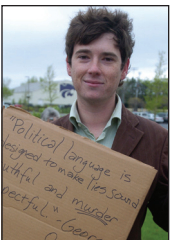 "Political language is
designed to make lies sound
uthful and murder
pectful." - Geor